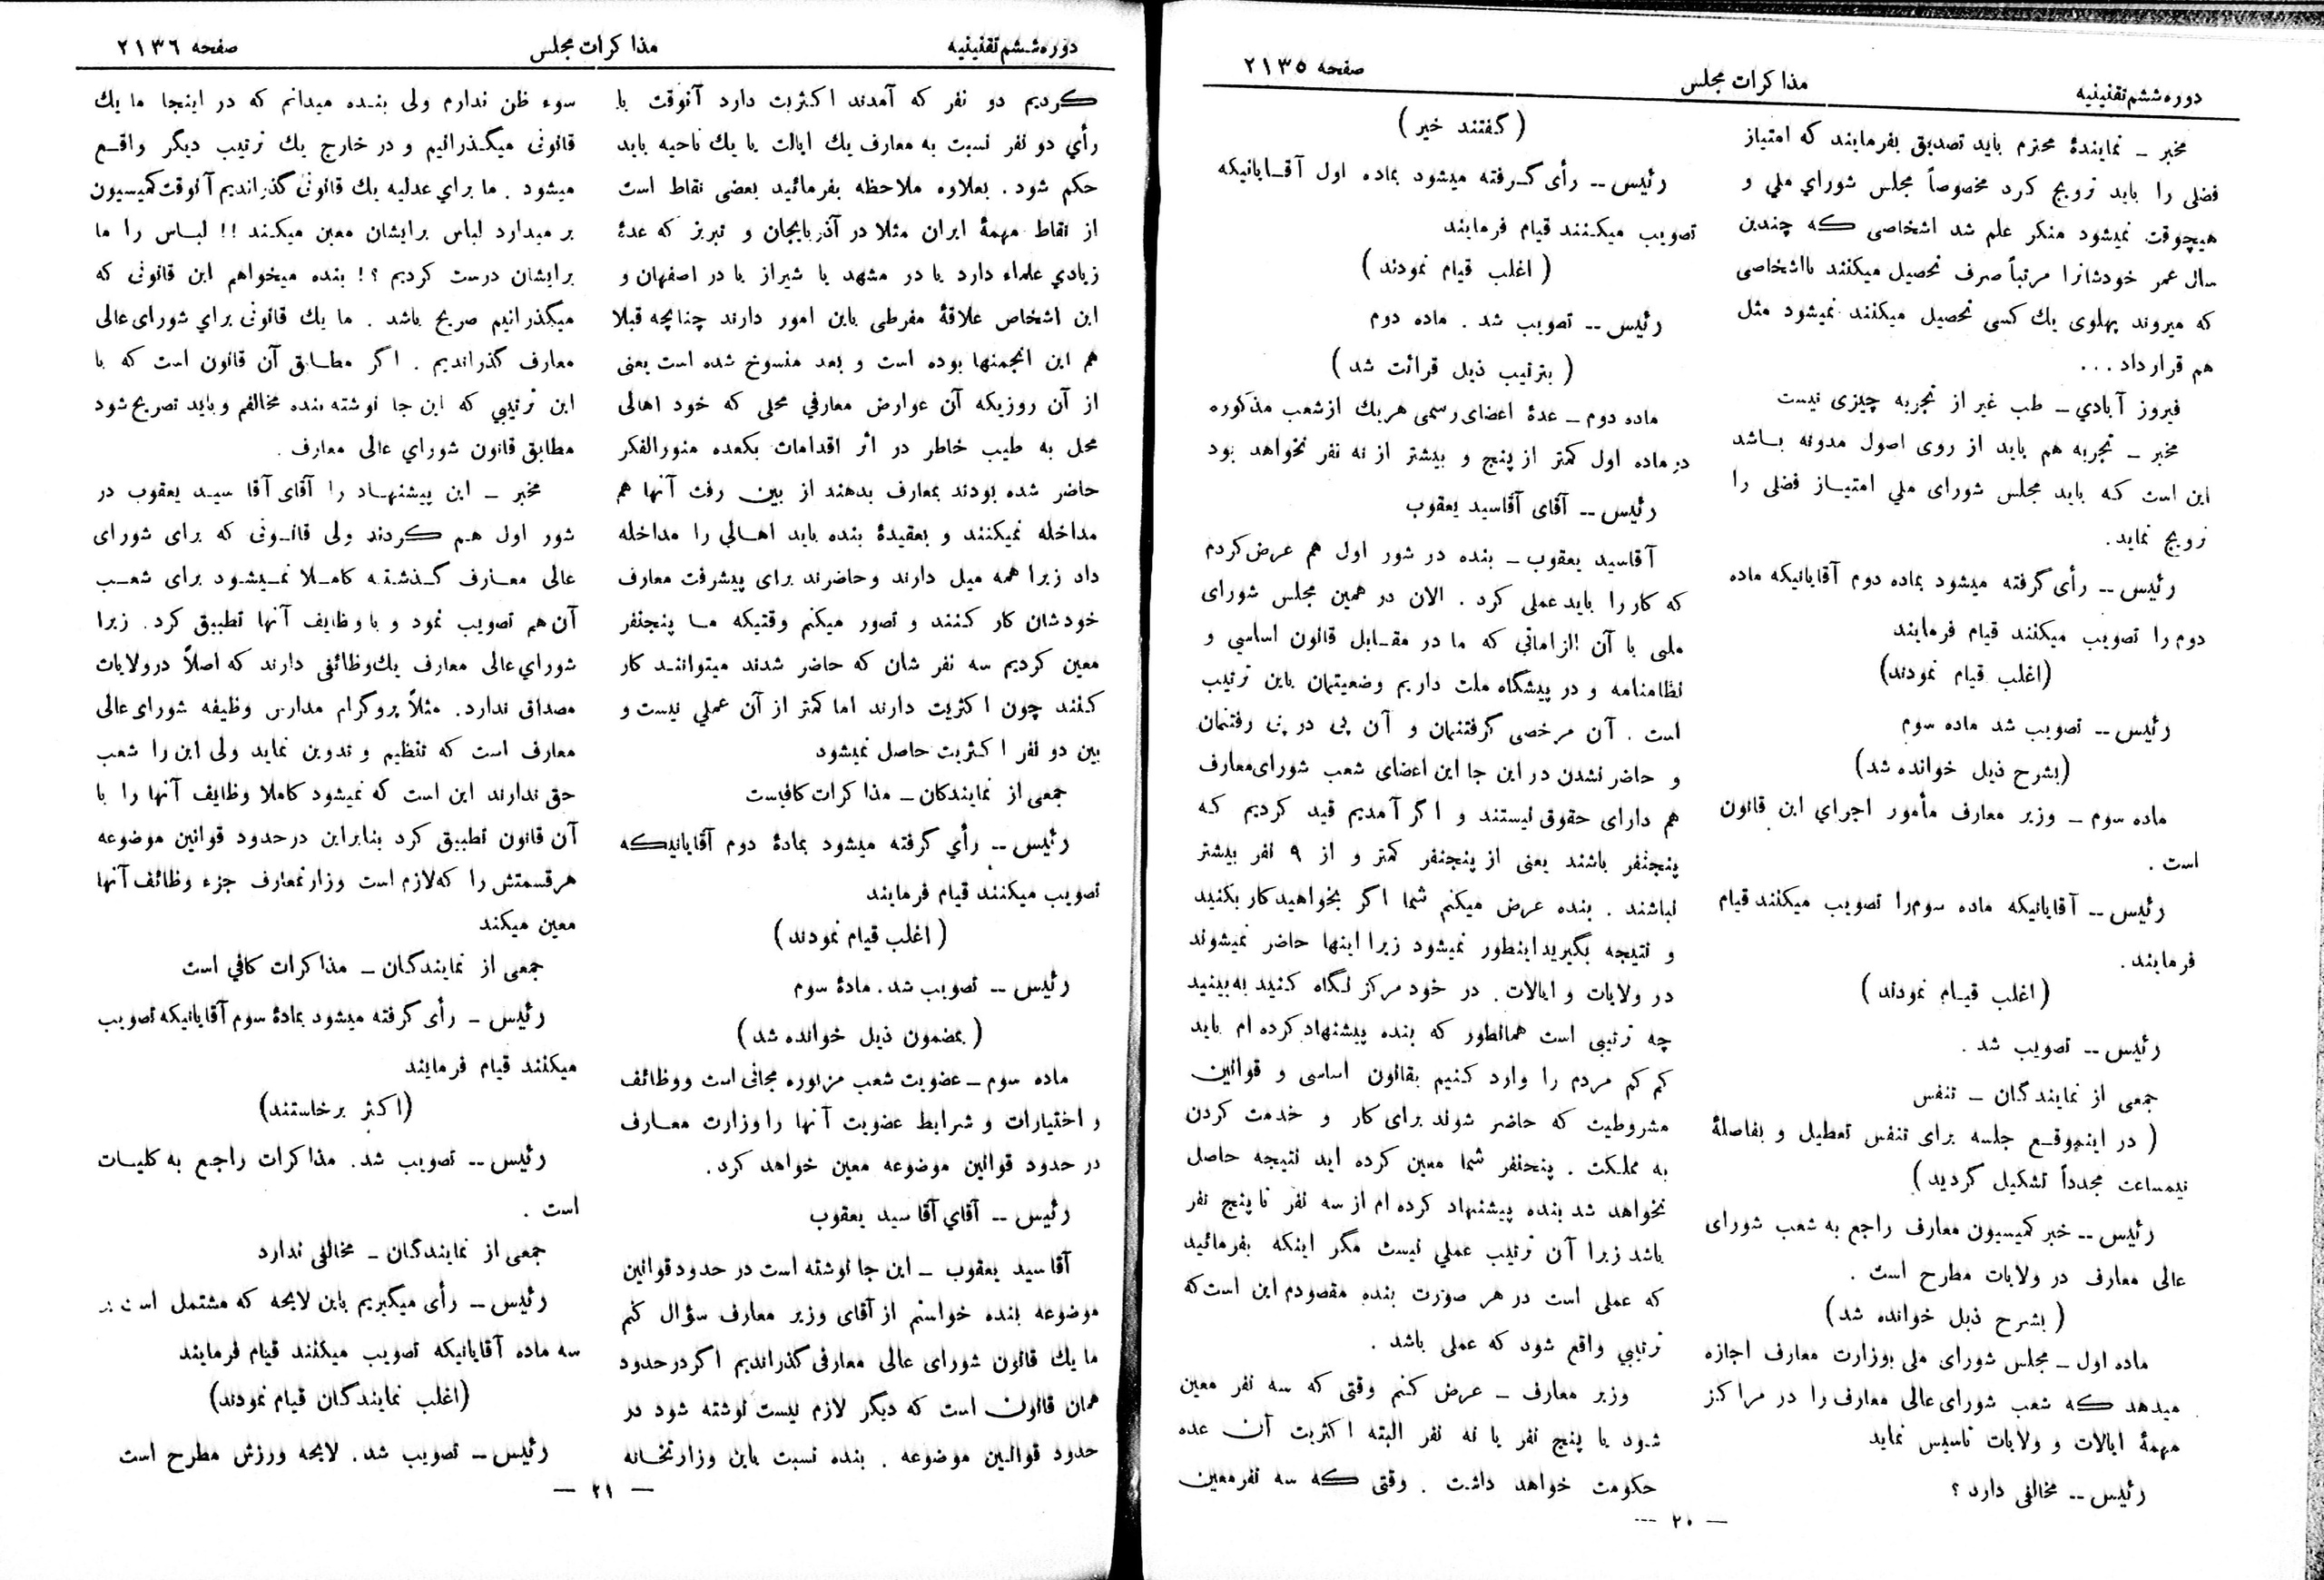 دوره ششم تقنینیه
مذاکرات مجلس
صفحه ۲۱۳۵
مخبر ــ نمایندهٔ محترم باید تصدیق بفرمایند که امتیاز
فضلی را باید ترویج کرد مخصوصاً مجلس شورای ملی و
هیچوقت نمیشود منکر علم شد اشخاصی که چندین
سال عمر خودشانرا مرتباً صرف تحصیل میکنند با اشخاصی
که میروند پهلوی یك کسی تحصیل میکنند نمیشود مثل
هم قرار داد ...
فیروز آبادی ــ طب غیر از تجربه چیزی نیست
مخبر ــ تجربه هم باید از روی اصول مدونه باشد
این است که باید مجلس شورای ملی امتیاز فضلی را
ترویج نماید.
رئیس ــ رأی گرفته میشود بماده دوم آقایانیکه ماده
دوم را تصویب میکنند قیام فرمایند
(اغلب قیام نمودند)
رئیس ــ تصویب شد ماده سوم
(بشرح ذیل خوانده شد)
ماده سوم ــ وزیر معارف مأمور اجرای این قانون
است .
رئیس ــ آقایانیکه ماده سوم را تصویب میکنند قیام
فرمایند.
(اغلب قیام نمودند)
رئیس ــ تصویب شد .
جمعی از نمایندگان ــ تنفس
( در اینموقع جلسه برای تنفس تعطیل و بفاصلهٔ
نیمساعت مجدداً تشکیل گردید)
رئیس ــ خبر کمیسیون معارف راجع به شعب شورای
عالی معارف در ولایات مطرح است .
(بشرح ذیل خوانده شد)
ماده اول ــ مجلس شورای ملی بوزارت معارف اجازه
میدهد که شعب شورای عالی معارف را در مراکز
مهمهٔ ایالات و ولایات تاسیس نماید
رئیس ــ مخالفی دارد ؟
(گفتند خیر)
رئیس ــ رأی گرفته میشود بماده اول آقایانیکه
تصویب میکنند قیام فرمایند
(اغلب قیام نمودند)
رئیس ــ تصویب شد . ماده دوم
(بترتیب ذیل قرائت شد)
ماده دوم ــ عدهٔ اعضای رسمی هریك از شعب مذکوره
در ماده اول کمتر از پنج و بیشتر از نه نفر نخواهد بود
رئیس ــ آقای آقاسید یعقوب
آقاسید یعقوب ــ بنده در شور اول هم عرض کردم
که کار را باید عملی کرد . الان در همین مجلس شورای
ملی با آن الزاماتی که ما در مقابل قانون اساسی و
نظامنامه و در پیشگاه ملت داریم وضعیتمان باین ترتیب
است . آن مرخصی گرفتنمان و آن پی در پی رفتنمان
و حاضر نشدن در این جا این اعضای شعب شورای معارف
هم دارای حقوق نیستند و اگر آمدیم قید کردیم که
پنجنفر باشند یعنی از پنجنفر کمتر و از ۹ نفر بیشتر
نباشند . بنده عرض میکنم شما اگر بخواهید کار بکنید
و نتیجه بگیرید اینطور نمیشود زیرا اینها حاضر نمیشوند
در ولایات و ایالات. در خود مرکز نگاه کنید به بینید
چه ترتیبی است همانطور که بنده پیشنهاد کرده ام باید
کم کم مردم را وارد کنیم بقانون اساسی و قوانین
مشروطیت که حاضر شوند برای کار و خدمت کردن
به مملکت . پنجنفر شما معین کرده اید نتیجه حاصل
نخواهد شد بنده پیشنهاد کرده ام از سه نفر تا پنج نفر
باشد زیرا آن ترتیب عملی نیست مگر اینکه بفرمائید
که عملی است در هر صورت بنده مقصودم این است که
ترتیبی واقع شود که عملی باشد .
وزیر معارف ــ عرض کنم وقتی که سه نفر معین
شود یا پنج نفر یا نه نفر البته اکثریت آن عده
حکومت خواهد داشت . وقتی که سه نفر معین
ــ ۲۰ ــ
دوره ششم تقنینیه
مذاکرات مجلس
صفحه ۲۱۳۶
کردیم دو نفر که آمدند اکثریت دارد آنوقت با
رأی دو نفر نسبت به معارف یك ایالت یا یك ناحیه باید
حکم شود . بعلاوه ملاحظه بفرمائید بعضی نقاط است
از نقاط مهمهٔ ایران مثلا در آذربایجان و تبریز که عدهٔ
زیادی علماء دارد یا در مشهد یا شیراز یا در اصفهان و
این اشخاص علاقهٔ مفرطی باین امور دارند چنانچه قبلا
هم این انجمنها بوده است و بعد منسوخ شده است یعنی
از آن روزیکه آن عوارض معارفی محلی که خود اهالی
محل به طیب خاطر در اثر اقدامات یکعده منورالفکر
حاضر شده بودند بمعارف بدهند از بین رفت آنها هم
مداخله نمیکنند و بعقیدهٔ بنده باید اهالی را مداخله
داد زیرا همه میل دارند و حاضرند برای پیشرفت معارف
خودشان کار کنند و تصور میکنم وقتیکه ما پنجنفر
معین کردیم سه نفر شان که حاضر شدند میتوانند کار
کنند چون اکثریت دارند اما کمتر از آن عملی نیست و
بین دو نفر اکثریت حاصل نمیشود
جمعی از نمایندکان ــ مذاکرات کافیست
رئیس ــ رأی گرفته میشود بمادهٔ دوم آقایانیکه
تصویب میکنند قیام فرمایند
(اغلب قیام نمودند)
رئیس ــ تصویب شد. مادهٔ سوم
(بمضمون ذیل خوانده شد)
ماده سوم ــ عضویت شعب مزبوره مجانی است و وظائف
و اختیارات و شرایط عضویت آنها را وزارت معارف
در حدود قوانین موضوعه معین خواهد کرد.
رئیس ــ آقای آقا سید یعقوب
آقا سید یعقوب ــ این جا نوشته است در حدود قوانین
موضوعه بنده خواستم از آقای وزیر معارف سؤال کنم
ما یك قانون شورای عالی معارفی گذراندیم اگر در حدود
همان قانون است که دیگر لازم نیست نوشته شود در
حدود قوانین موضوعه . بنده نسبت باین وزارتخانه
سوء ظن ندارم ولی بنده میدانم که در اینجا ما یك
قانونی میگذرانیم و در خارج یك ترتیب دیگر واقع
میشود . ما برای عدلیه یك قانونی گذراندیم آنوقت کمیسیون
بر میدارد لباس برایشان معین میکند !! لباس را ما
برایشان درست کردیم ؟! بنده میخواهم این قانونی که
میگذرانیم صریح باشد . ما یك قانونی برای شورای عالی
معارف گذراندیم . اگر مطابق آن قانون است که با
این ترتیبی که این جا نوشته بنده مخالفم و باید تصریح شود
مطابق قانون شورای عالی معارف .
مخبر ــ این پیشنهاد را آقای آقا سید یعقوب در
شور اول هم کردند ولی قانونی که برای شورای
عالی معارف گذشته کاملا نمیشود برای شعب
آن هم تصویب نمود و با وظایف آنها تطبیق کرد. زیرا
شورای عالی معارف یك وظائفی دارند که اصلاً در ولایات
مصداق ندارد. مثلاً پروگرام مدارس وظیفه شورای عالی
معارف است که تنظیم و تدوین نماید ولی این را شعب
حق ندارند این است که نمیشود کاملا وظایف آنها را با
آن قانون تطبیق کرد بنابراین در حدود قوانین موضوعه
هر قسمتش را که لازم است وزارتمعارف جزء وظائف آنها
معین میکند
جمعی از نمایندگان ــ مذاکرات کافی است
رئیس ــ رأی گرفته میشود بمادهٔ سوم آقایانیکه تصویب
میکنند قیام فرمایند
(اکثر برخاستند)
رئیس ــ تصویب شد. مذاکرات راجع به کلیات
است .
جمعی از نمایندگان ــ مخالفی ندارد
رئیس ــ رأی میگیریم باین لایحه که مشتمل است بر
سه ماده آقایانیکه تصویب میکنند قیام فرمایند
(اغلب نمایندگان قیام نمودند)
رئیس ــ تصویب شد. لایحه ورزش مطرح است
ــ ۲۱ ــ